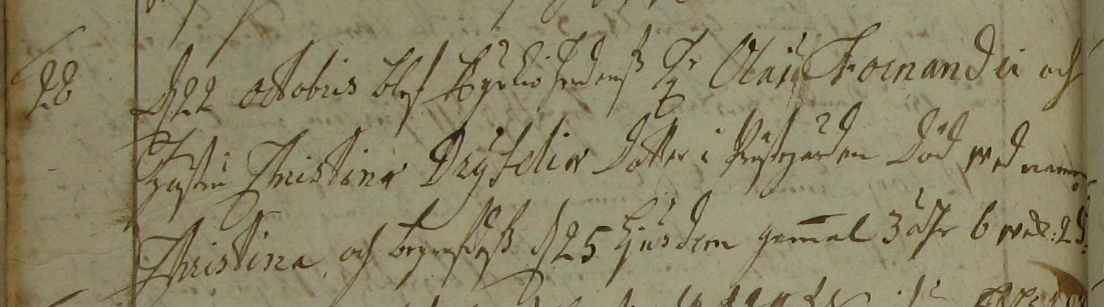 28 d 22 octobris blef Kyrkioherdens H:r Olai Fornandri och
Hustru Christinæ Dryseliæ dotter i Prästegården död wed namn
Christina, och begrofs d 25 Hujus dom gammal 3 åhr 6 wek: 2 d.